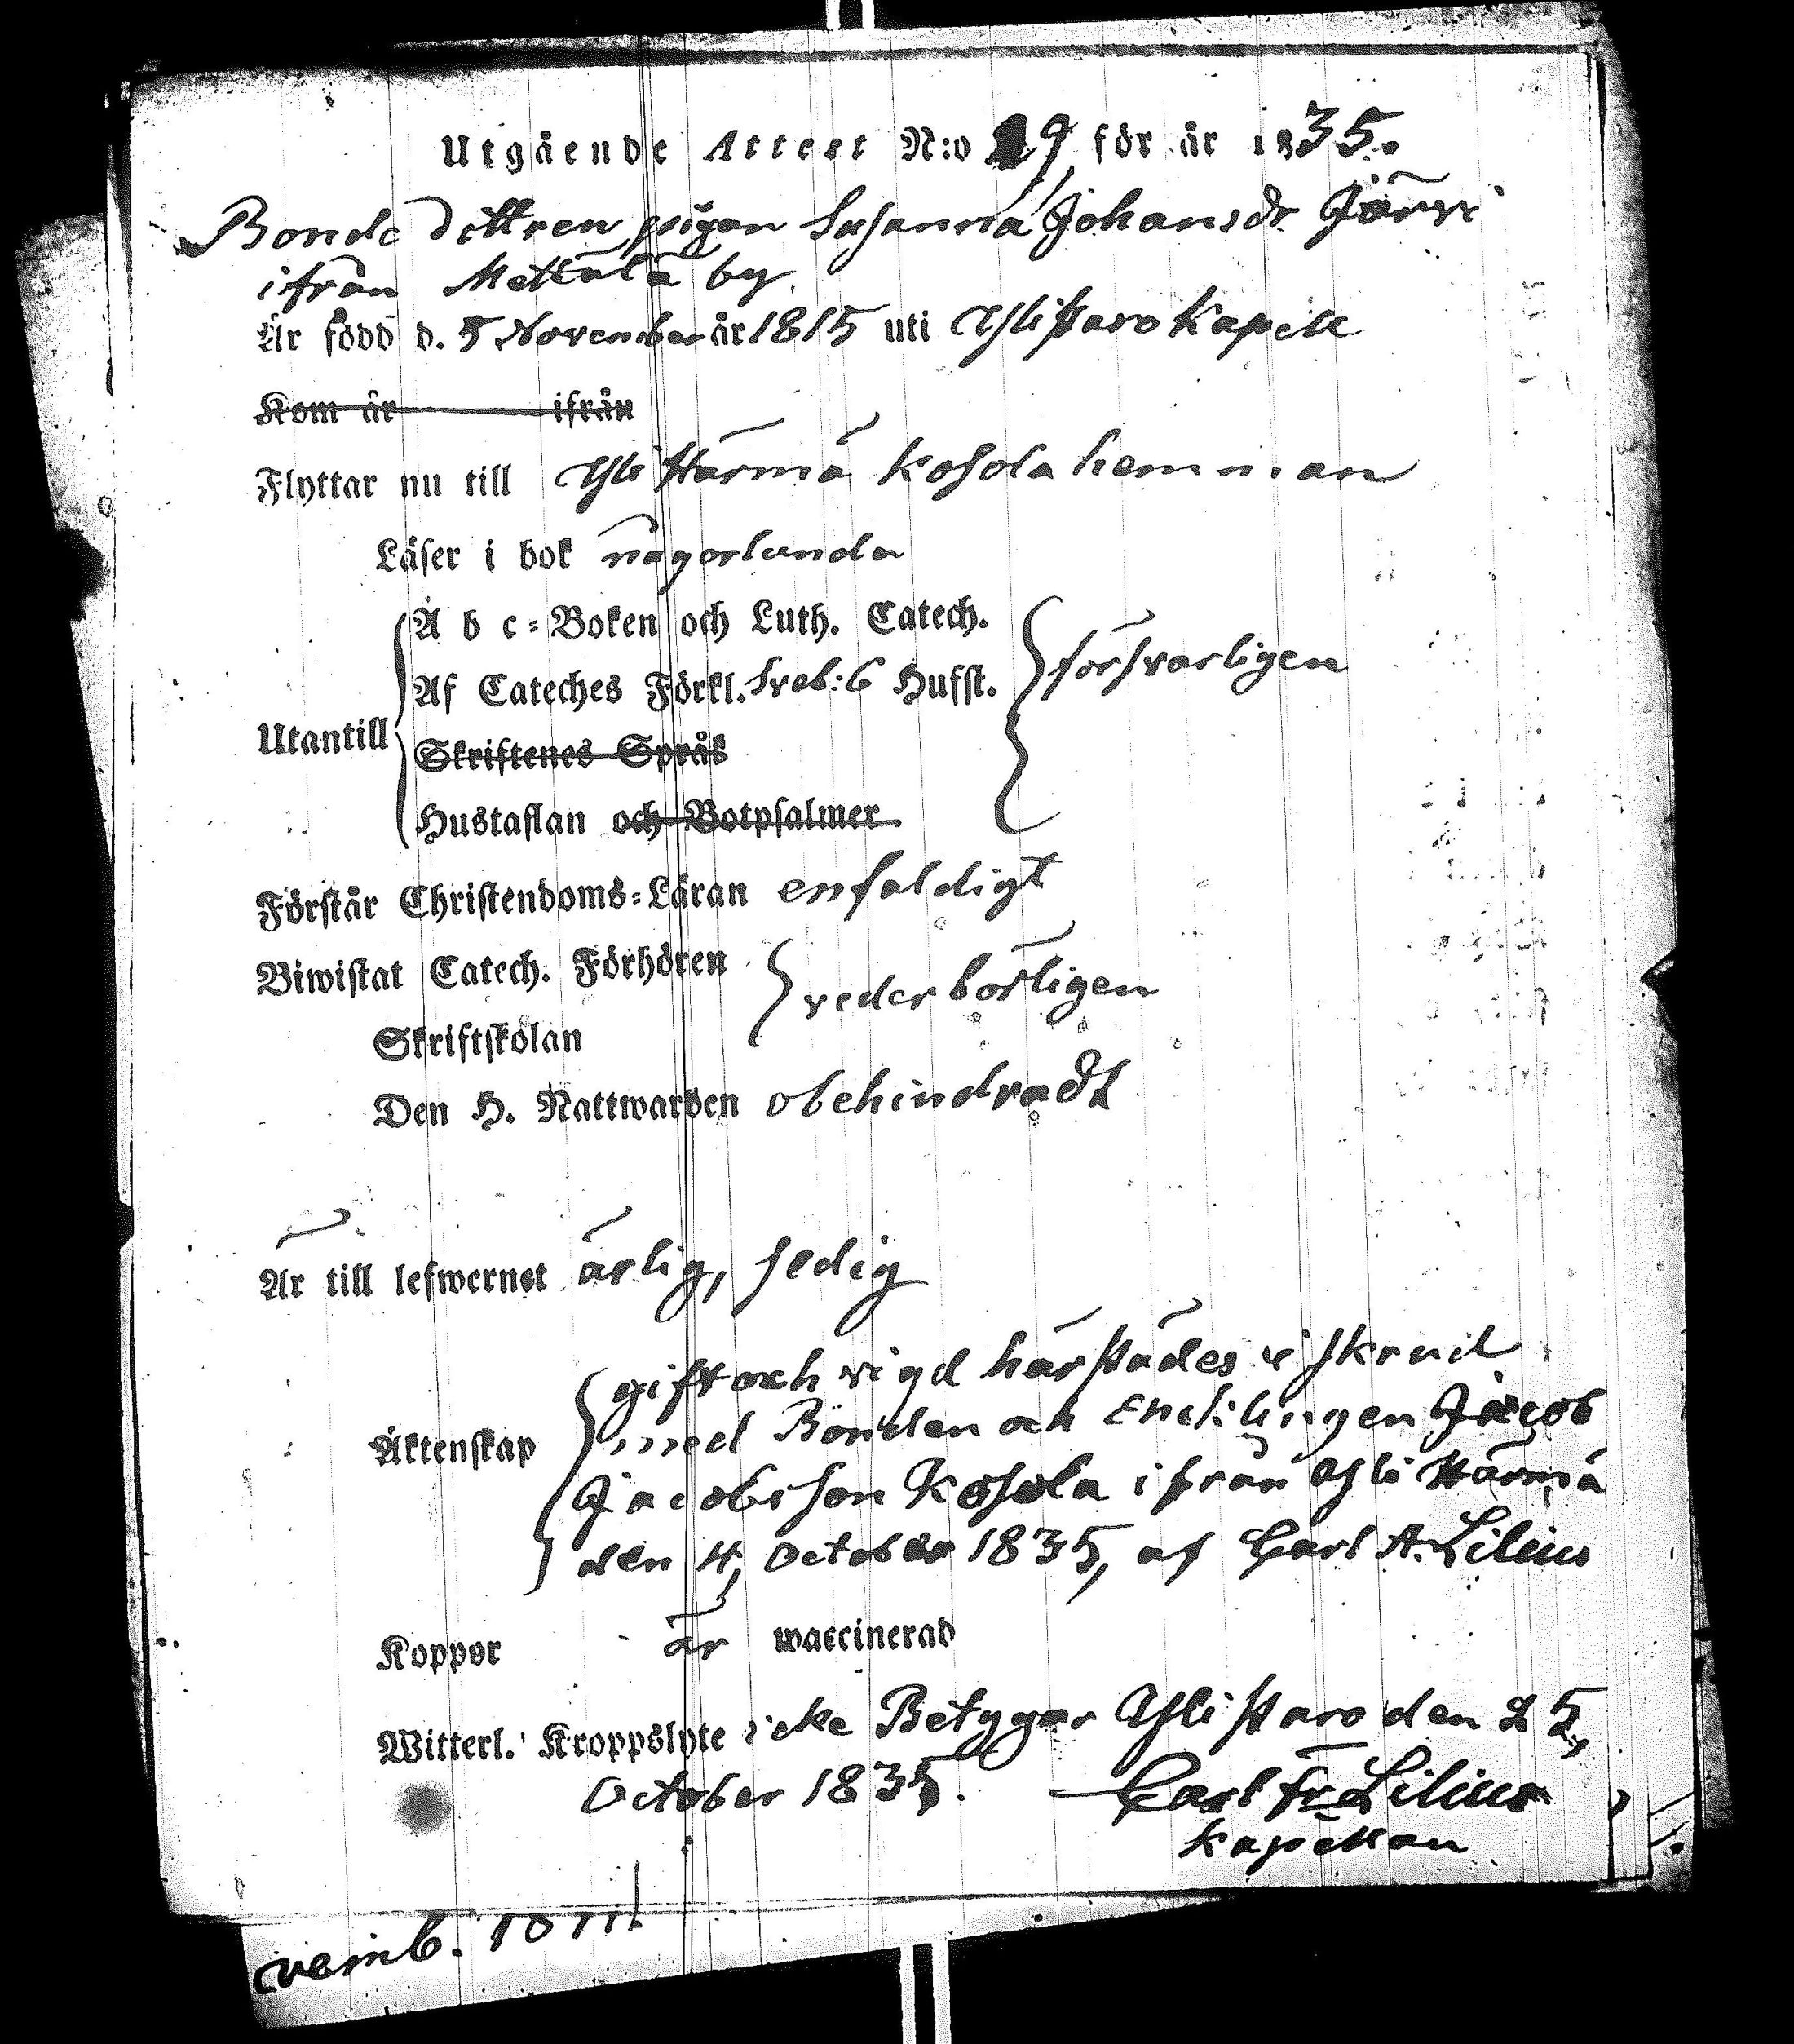 Utgående Attest N:o 29 för år 1835.
Bonde dottren pigan Susanna Johansdr Järvi
ifrån Mettälä by
Är född d. 5 November år 1815 uti Ylistaro Kapell
Kom år ifrån
Flyttar nu till Yli Härmä Kosola hemman
Läser i bok någorlunda
A b c-Boken och Luth. Catech.
Af Cateches Förkl. Sveb: 6 Hufst. försvarligen
Utantill
Skriftenes Språk
Hustaflan och Botpsalmer
Förstår Christendoms-Läran enfaldigt
Biwistat Catech. Förhören
vederbörligen
Skriftskolan
Den H. Nattwarden obehindradt
Är till lefwernet ärlig, sedig
gift och vigd härstädes i skrud
Äktenskap med Bonden och Enklingen Jacob
Jacobsson Kosola ifrån Yli Härmä
den 4, October 1835, af Carl A. Lilius
Koppor är waccinerad
Witterl. Kroppslyte icke Betygar Ylistaro den 25,
October 1835. Carl Fr Lilius
Kapellan